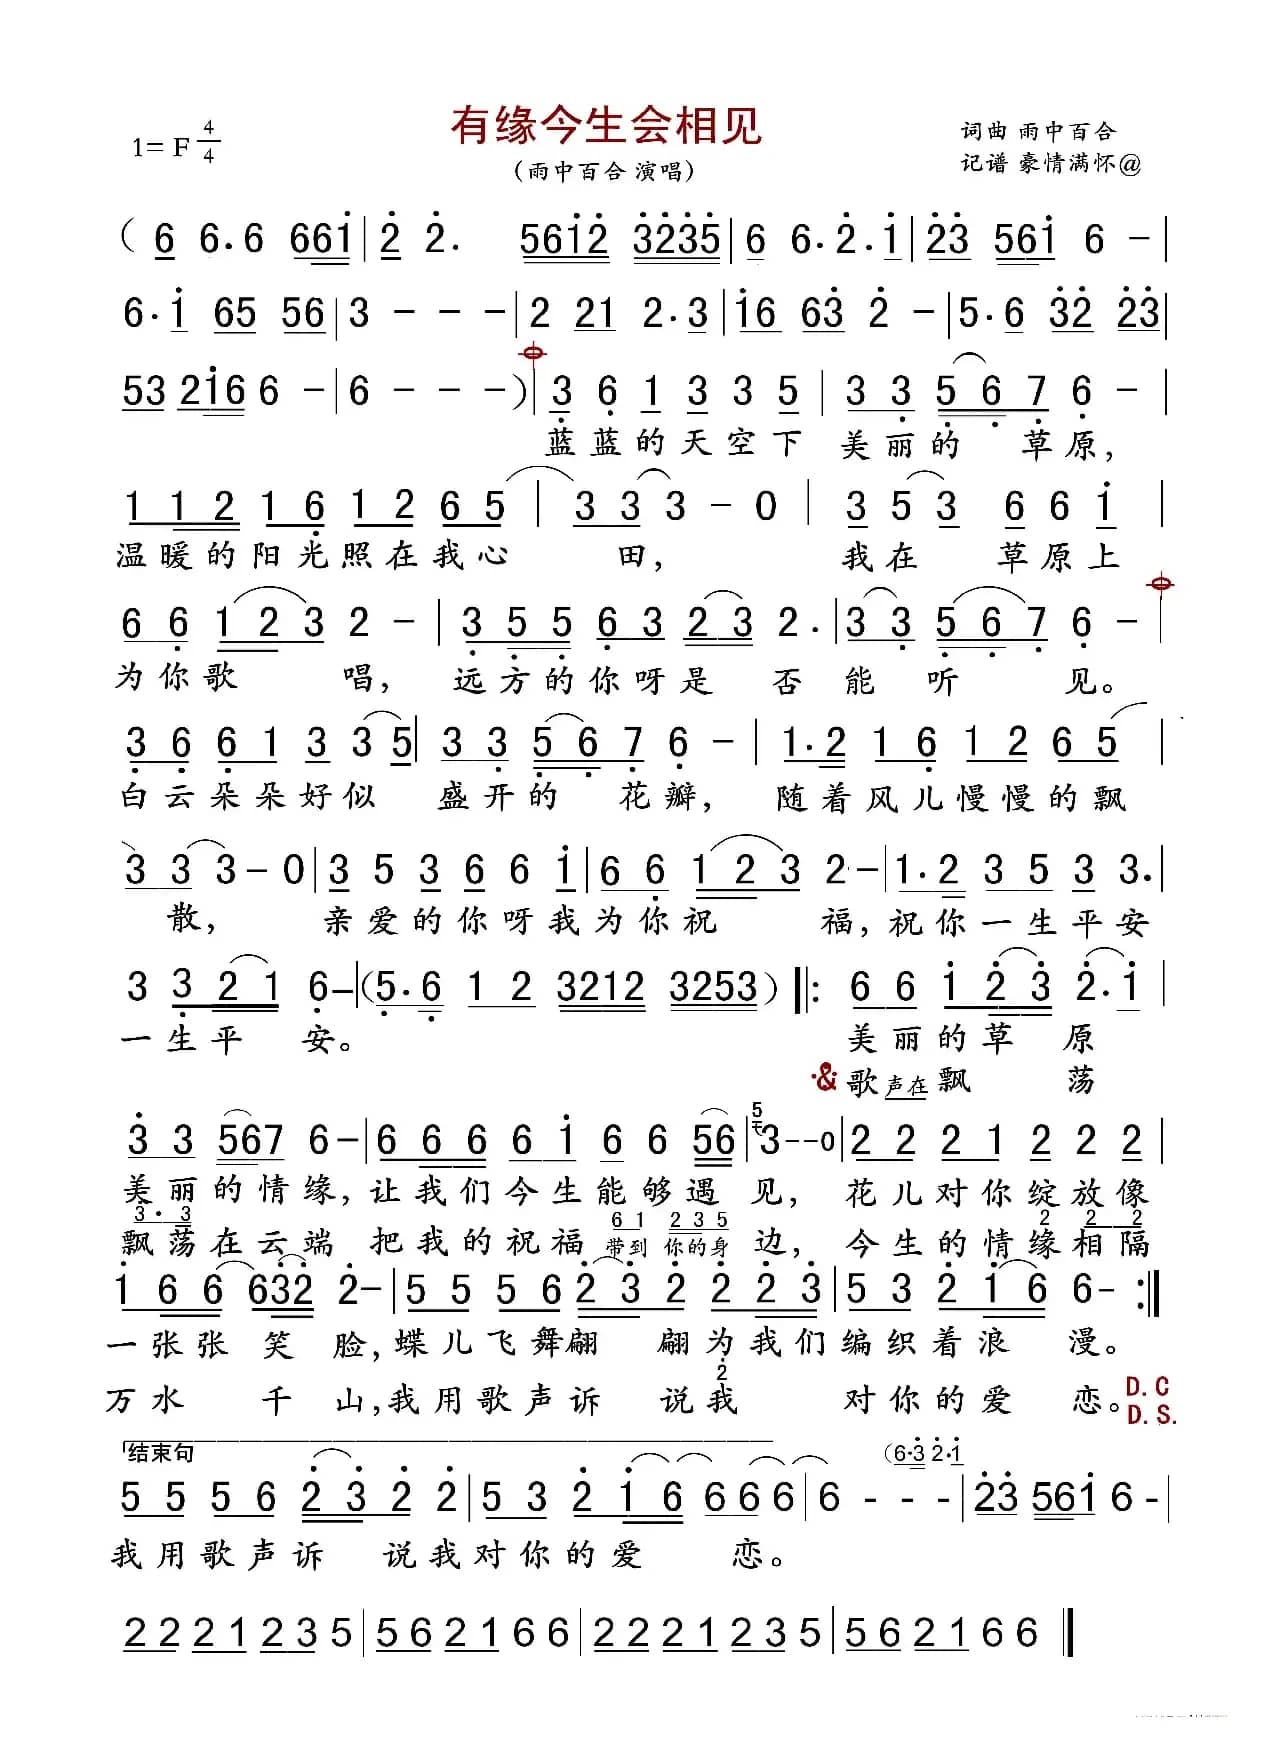 有缘今生会相见
1= F 4/4
词曲 雨中百合
(雨中百合 演唱)
记谱 豪情满怀@
( 6 6. 6 661 | 2 2. 5612 3235 | 6 6. 2. 1 | 23 561 6 - |
6. 1 65 56 | 3 - - - | 2 21 2. 3 | 16 63 2 - | 5. 6 32 23 |
53 216 6 - | 6 - - - ) 3 6 1 3 3 5 | 3 3 5 6 7 6 - |
蓝蓝的天空下 美丽的 草原,
1 1 2 1 6 1 2 6 5 | 3 3 3 - 0 | 3 5 3 6 6 1 |
温暖的阳光照在我心 田, 我在 草原上
6 6 1 2 3 2 - | 3 5 5 6 3 2 3 2. | 3 3 5 6 7 6 - |
为你歌 唱, 远方的你呀是 否 能 听 见。
3 6 6 1 3 3 5 | 3 3 5 6 7 6 - | 1. 2 1 6 1 2 6 5 |
白云朵朵好似 盛开的 花瓣, 随着风儿慢慢的飘
3 3 3 - 0 | 3 5 3 6 6 1 | 6 6 1 2 3 2 - | 1. 2 3 5 3 3. |
散, 亲爱的你呀我为你祝 福,祝你一生平安
3 3 2 1 6 - | (5. 6 1 2 3212 3253 ) ‖: 6 6 1 2 3 2. 1 |
一生平 安。 美丽的草 原
歌声在飘 荡
3 3 567 6 - | 6 6 6 6 1 6 6 56 | 5 3 - - 0 | 2 2 2 1 2 2 2 |
美丽的情缘,让我们今生能够遇 见, 花儿对你绽放像
3. 3 6 1 2 3 5 2 2 2
飘荡在云端 把我的祝福 带到 你的身 边, 今生的情缘相隔
1 6 6 632 2 - | 5 5 5 5 2 3 2 2 2 3 | 5 3 2 1 6 6 - :‖
一张张 笑 脸,蝶儿飞舞翩 翩为我们编织着浪 漫。
2
万水 千 山,我用歌声诉 说我 对你的爱 恋。 D.C
D.S.
结束句 (6. 3 2. 1
5 5 5 6 2 3 2 2 | 5 3 2 1 6 6 6 6 | 6 - - - | 23 561 6 - |
我用歌声诉 说我对你的爱 恋。
2 2 2 1 2 3 5 | 5 6 2 1 6 6 | 2 2 2 1 2 3 5 | 5 6 2 1 6 6 ‖